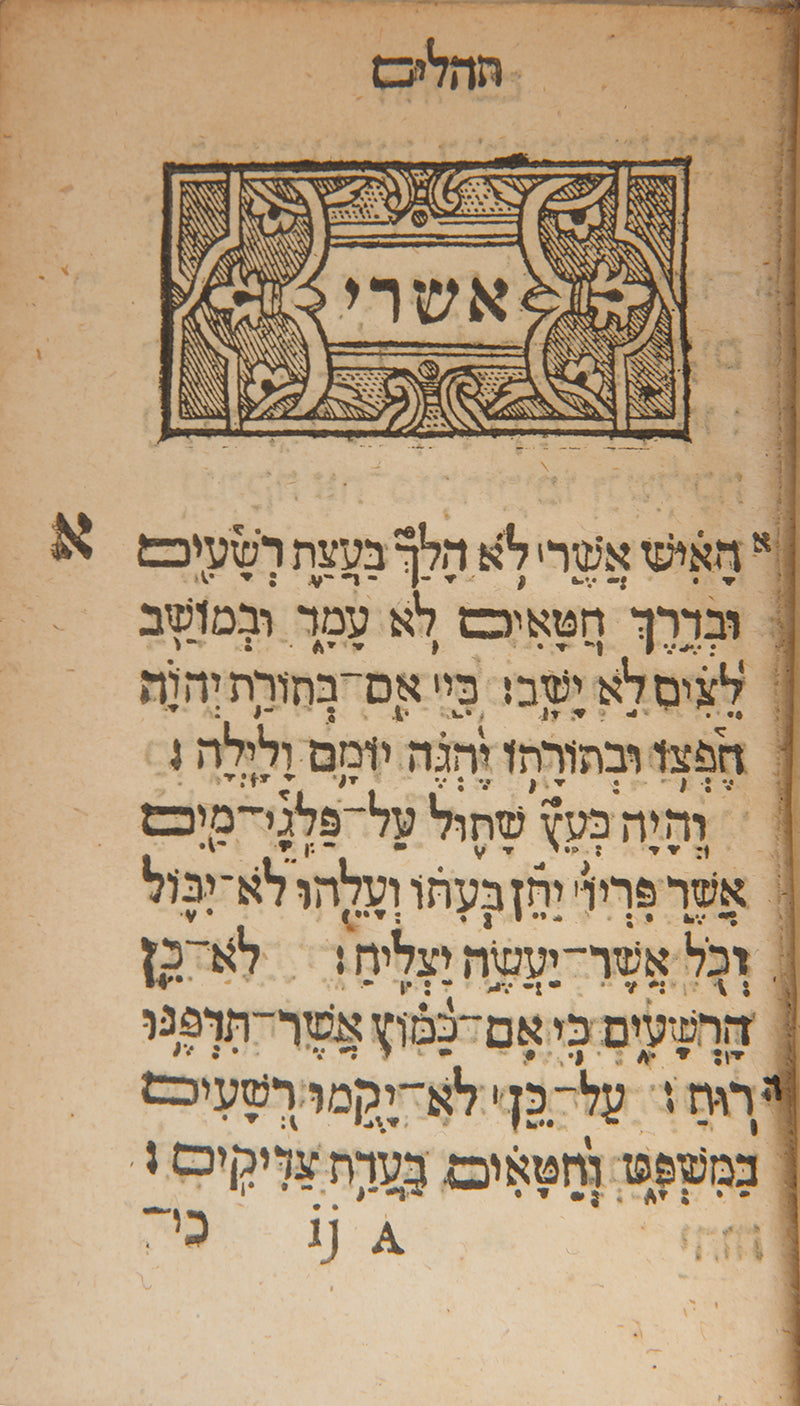 תהלים
אשרי
א
א הָאִישׁ אֲשֶׁר לֹא הָלַךְ בַּעֲצַת רְשָׁעִים
וּבְדֶרֶךְ חַטָּאִים לֹא עָמָד וּבְמוֹשַׁב
לֵצִים לֹא יָשָׁב׃ כִּי אִם־בְּתוֹרַת יְהוָֹה
חֶפְצוֹ וּבְתוֹרָתוֹ יֶהְגֶּה יוֹמָם וָלָיְלָה׃
וְהָיָה כְּעֵץ שָׁתוּל עַל־פַּלְגֵי־מָיִם
אֲשֶׁר פִּרְיוֹ יִתֵּן בְּעִתּוֹ וְעָלֵהוּ לֹא־יִבּוֹל
וְכֹל אֲשֶׁר־יַעֲשֶׂה יַצְלִיחַ׃ לֹא־כֵן
הָרְשָׁעִים כִּי אִם־כַּמּוֹץ אֲשֶׁר־תִּדְּפֶנּוּ
ה רוּחַ׃ עַל־כֵּן לֹא־יָקֻמוּ רְשָׁעִים
בַּמִּשְׁפָּט וְחַטָּאִים בַּעֲדַת צַדִּיקִים׃
A ij כי־